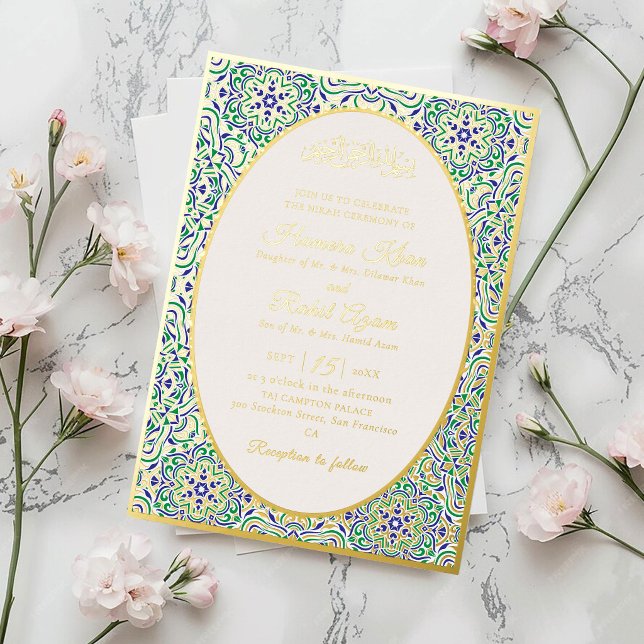 بسم الله الرحمن الرحيم
JOIN US TO CELEBRATE
THE NIKAH CEREMONY OF
Humera Khan
Daughter of Mr. & Mrs. Dilawar Khan
and
Rahil Azam
Son of Mr. & Mrs. Hamid Azam
SEPT 15 20XX
at 3 o'clock in the afternoon
TAJ CAMPTON PALACE
300 Stockton Street, San Francisco
CA
Reception to follow